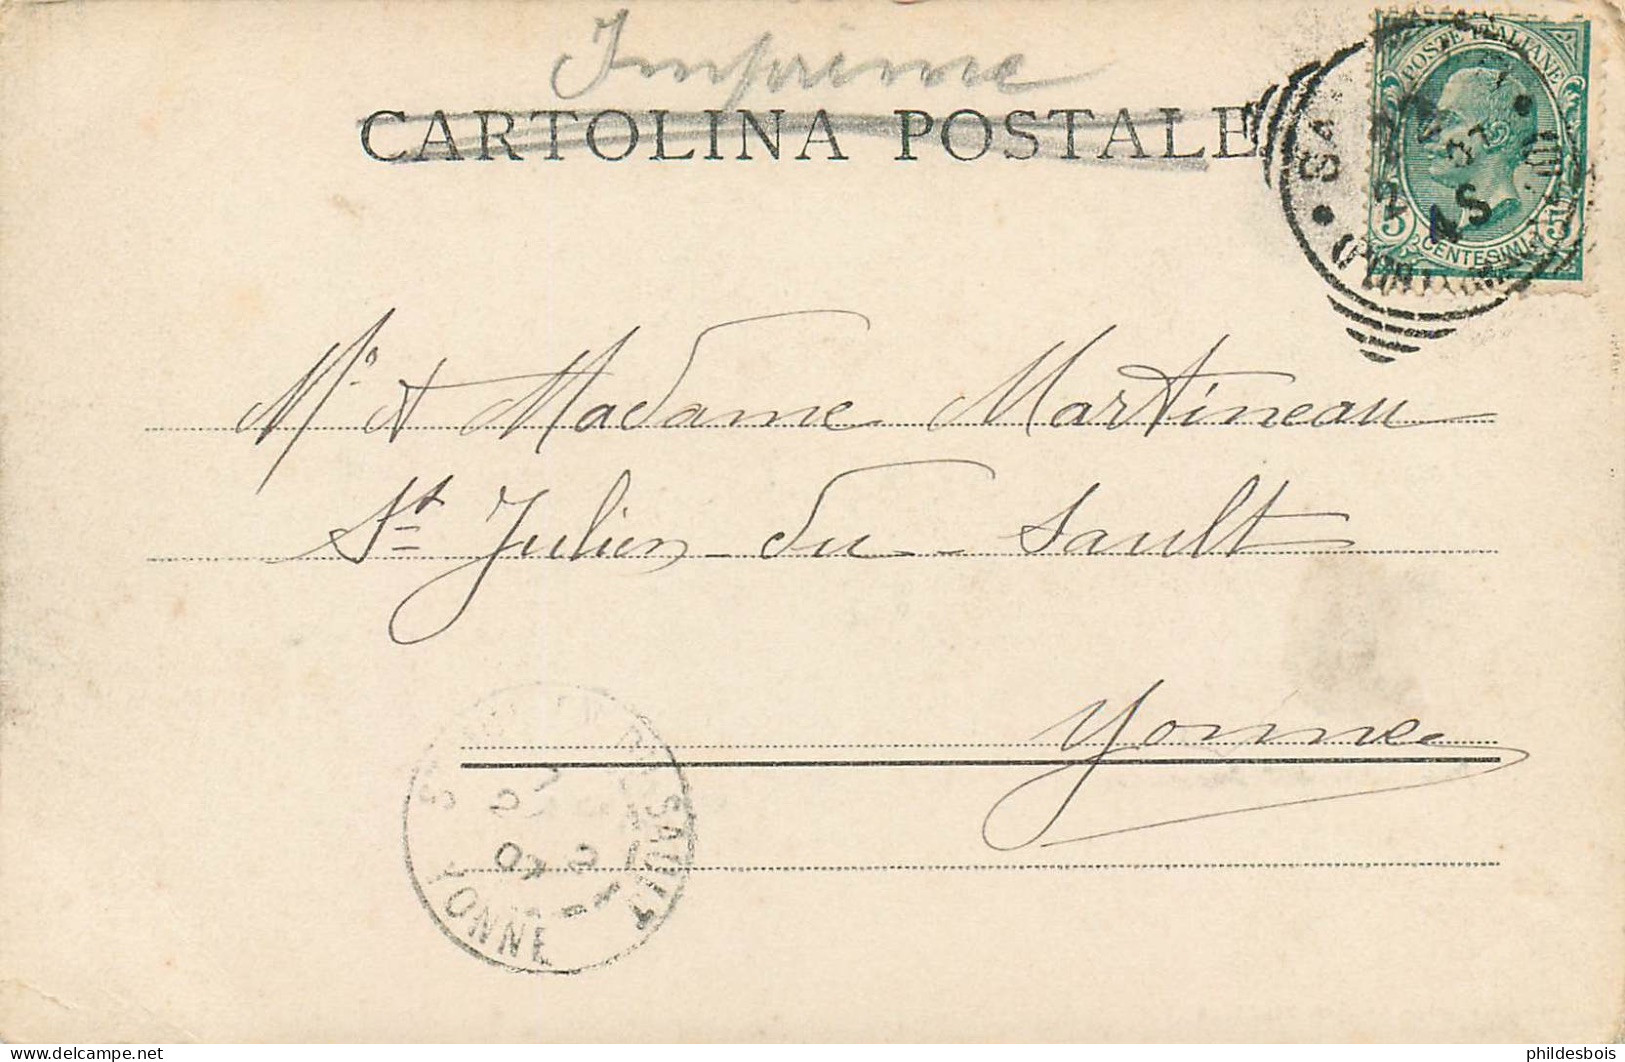 Imprime
CARTOLINA POSTALE
POSTE ITALIANE
5 CENTESIMI 5
Mr et Madame Martineau
St Julien-du-Sault
Yonne
SAULT
YONNE
07
delcampe.net
phildesbois